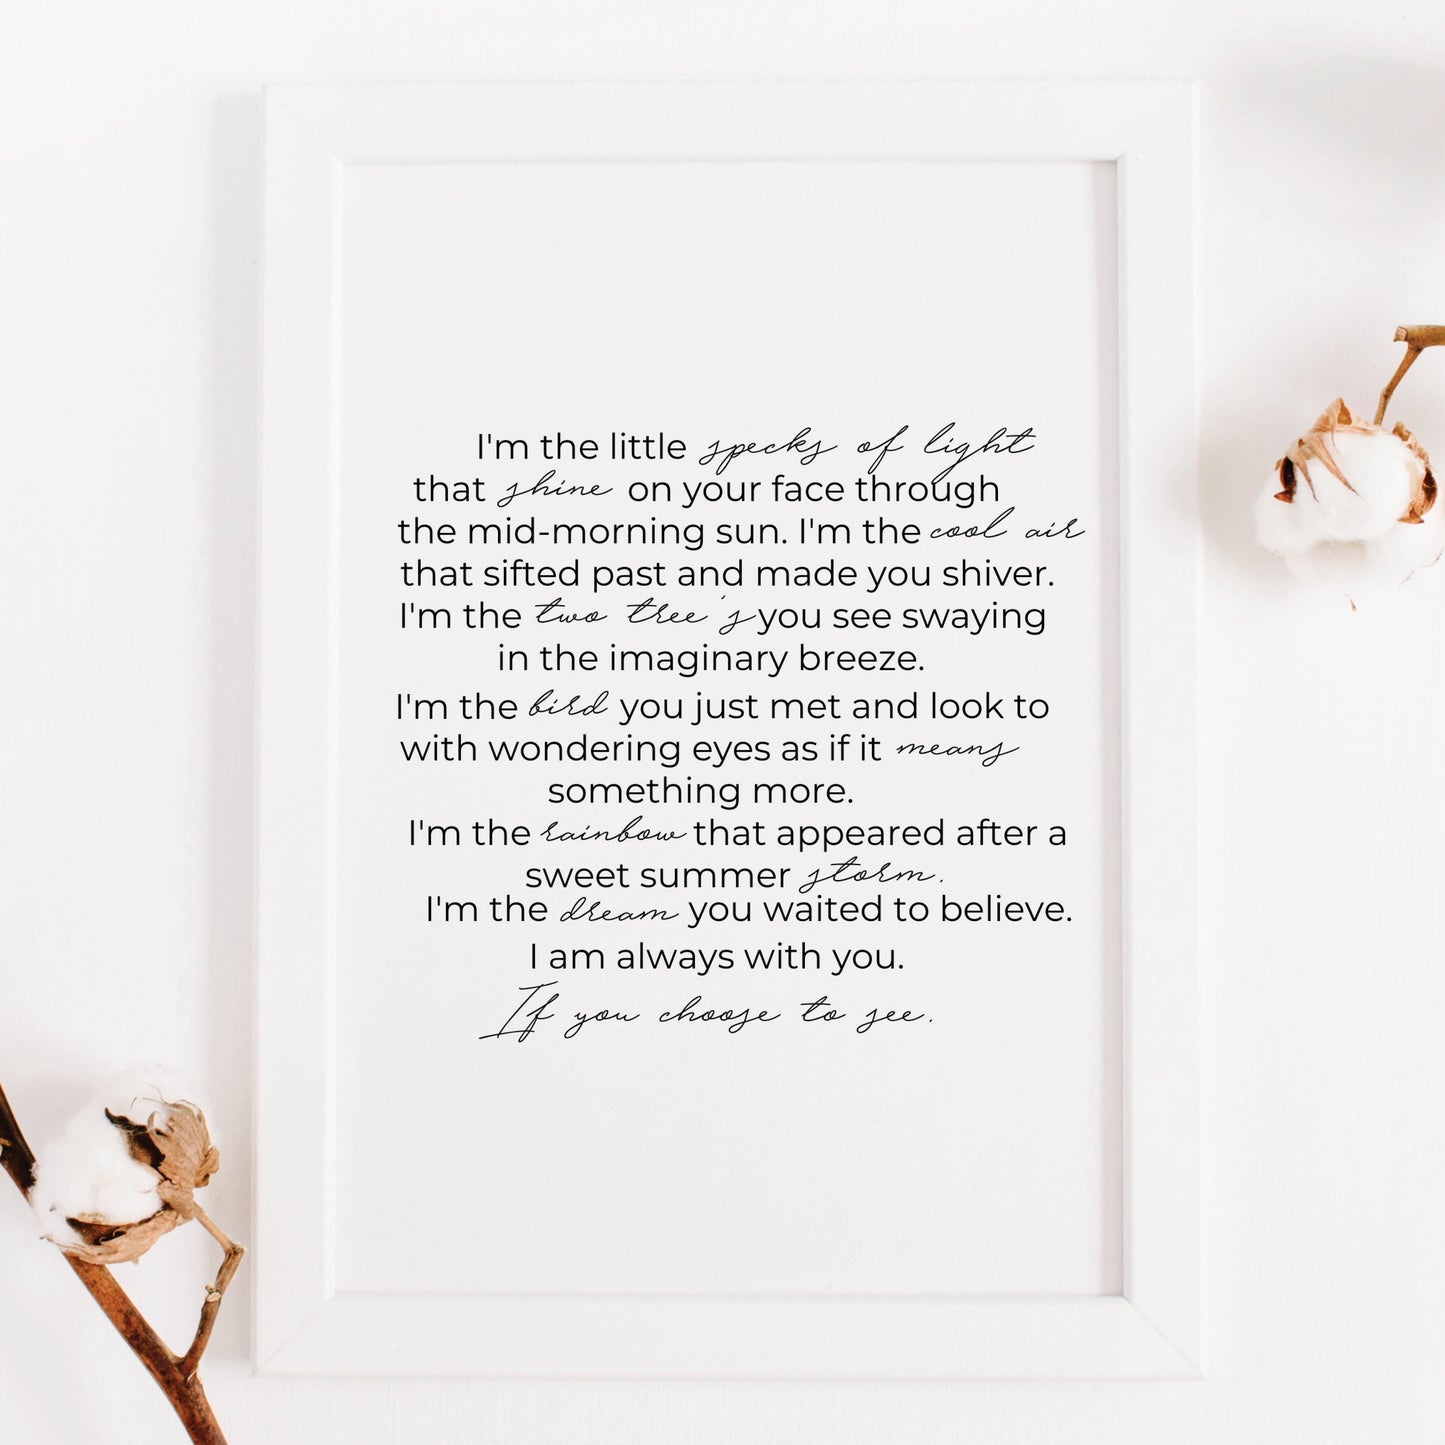 I'm the little specks of light
that shine on your face through
the mid-morning sun. I'm the cool air
that sifted past and made you shiver.
I'm the two tree's you see swaying
in the imaginary breeze.
I'm the bird you just met and look to
with wondering eyes as if it means
something more.
I'm the rainbow that appeared after a
sweet summer storm.
I'm the dream you waited to believe.
I am always with you.
If you choose to see.